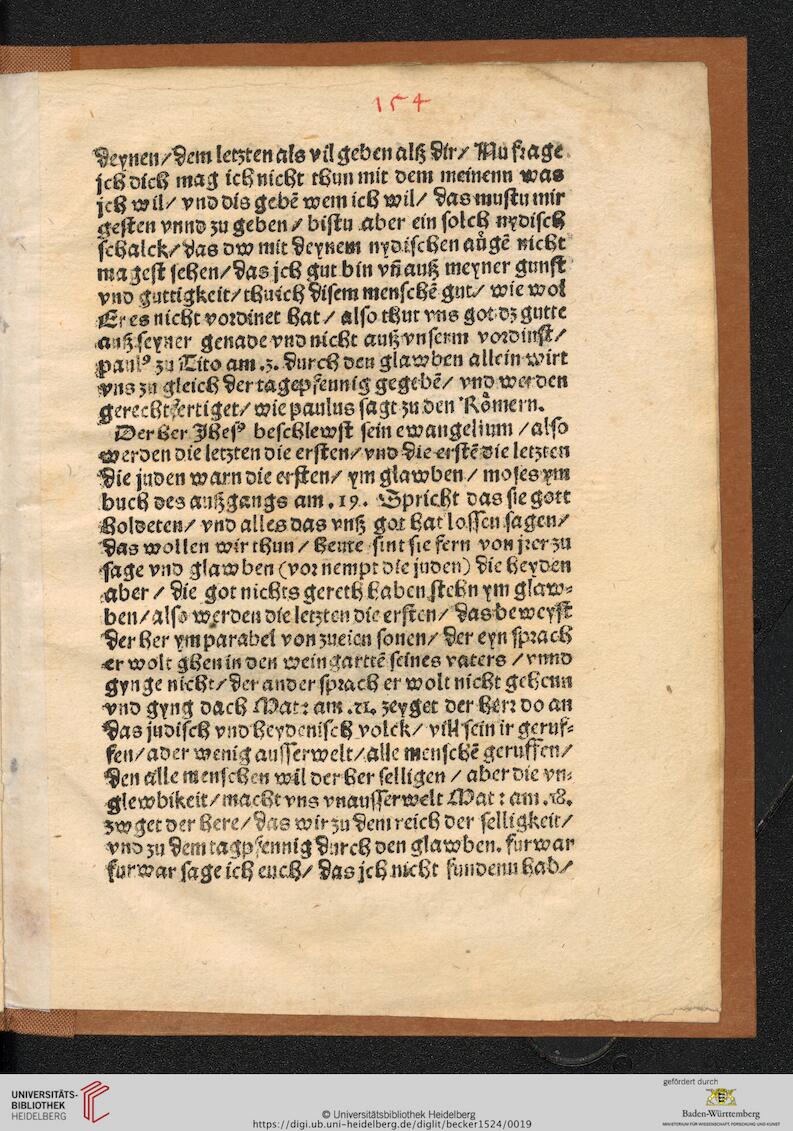 154
deynen / dem letzten als vil geben alß dir / Nu frage
jch dich mag ich nicht thun mit dem meinenn was
jch wil / vnd dis gebē wem ich wil / das mustu mir
gesten vnnd zu geben / bistu aber ein solch nydisch
schalck / das dw mit deynem nydischen aůgē nicht
magest sehen / das jch gut bin vn̄ auß meyner gunst
vnd guttigkeit / thu ich disem menschē gut / wie wol
Er es nicht vordinet hat / also thut vns got dz gutte
auß seyner genade vnd nicht auß vnserm vordinst /
paulꝰ zu Tito am .3. durch den glawben allein wirt
vns zu gleich der tagepfennig gegebē / vnd werden
gerechtfertiget / wie paulus sagt zu den Rômern.
Der her Jhesꝰ beschlewst sein ewangelium / also
werden die letzten die ersten / vnd die erstē die letzten
die juden warn die ersten / ym glawben / moses ym
buch des außgangs am . 19 . Spricht das sie gott
holdeten / vnd alles das vnß got hat lossen sagen /
das wollen wir thun / heute sint sie fern von jrer zu
sage vnd glawben (vor nempt die juden) die heyden
aber / die got nichts gereth haben stehn ym glaw⸗
ben / also werden die letzten die ersten / das beweyst
der her ym parabel von zueien sonen / der eyn sprach
er wolt ghen in den weingarttē seines vaters / vnnd
gynge nicht / der ander sprach er wolt nicht gehenn
vnd gyng dach Mat : am .21. zeyget der herr do an
das judisch vnd heydenisch volck / vill sein ir geruf⸗
fen / ader wenig ausserwelt / alle menschē geruffen /
den alle menschen wil der her selligen / aber die vn⸗
glewbikeit / macht vns vnausserwelt Mat : am .18.
zwget der here / das wir zu dem reich der selligkeit /
vnd zu dem tagpfennig durch den glawben. furwar
furwar sage ich euch / das jch nicht fundenn hab /
UNIVERSITÄTS-
BIBLIOTHEK
HEIDELBERG
© Universitätsbibliothek Heidelberg
https://digi.ub.uni-heidelberg.de/diglit/becker1524/0019
gefördert durch
Baden-Württemberg
MINISTERIUM FÜR WISSENSCHAFT, FORSCHUNG UND KUNST